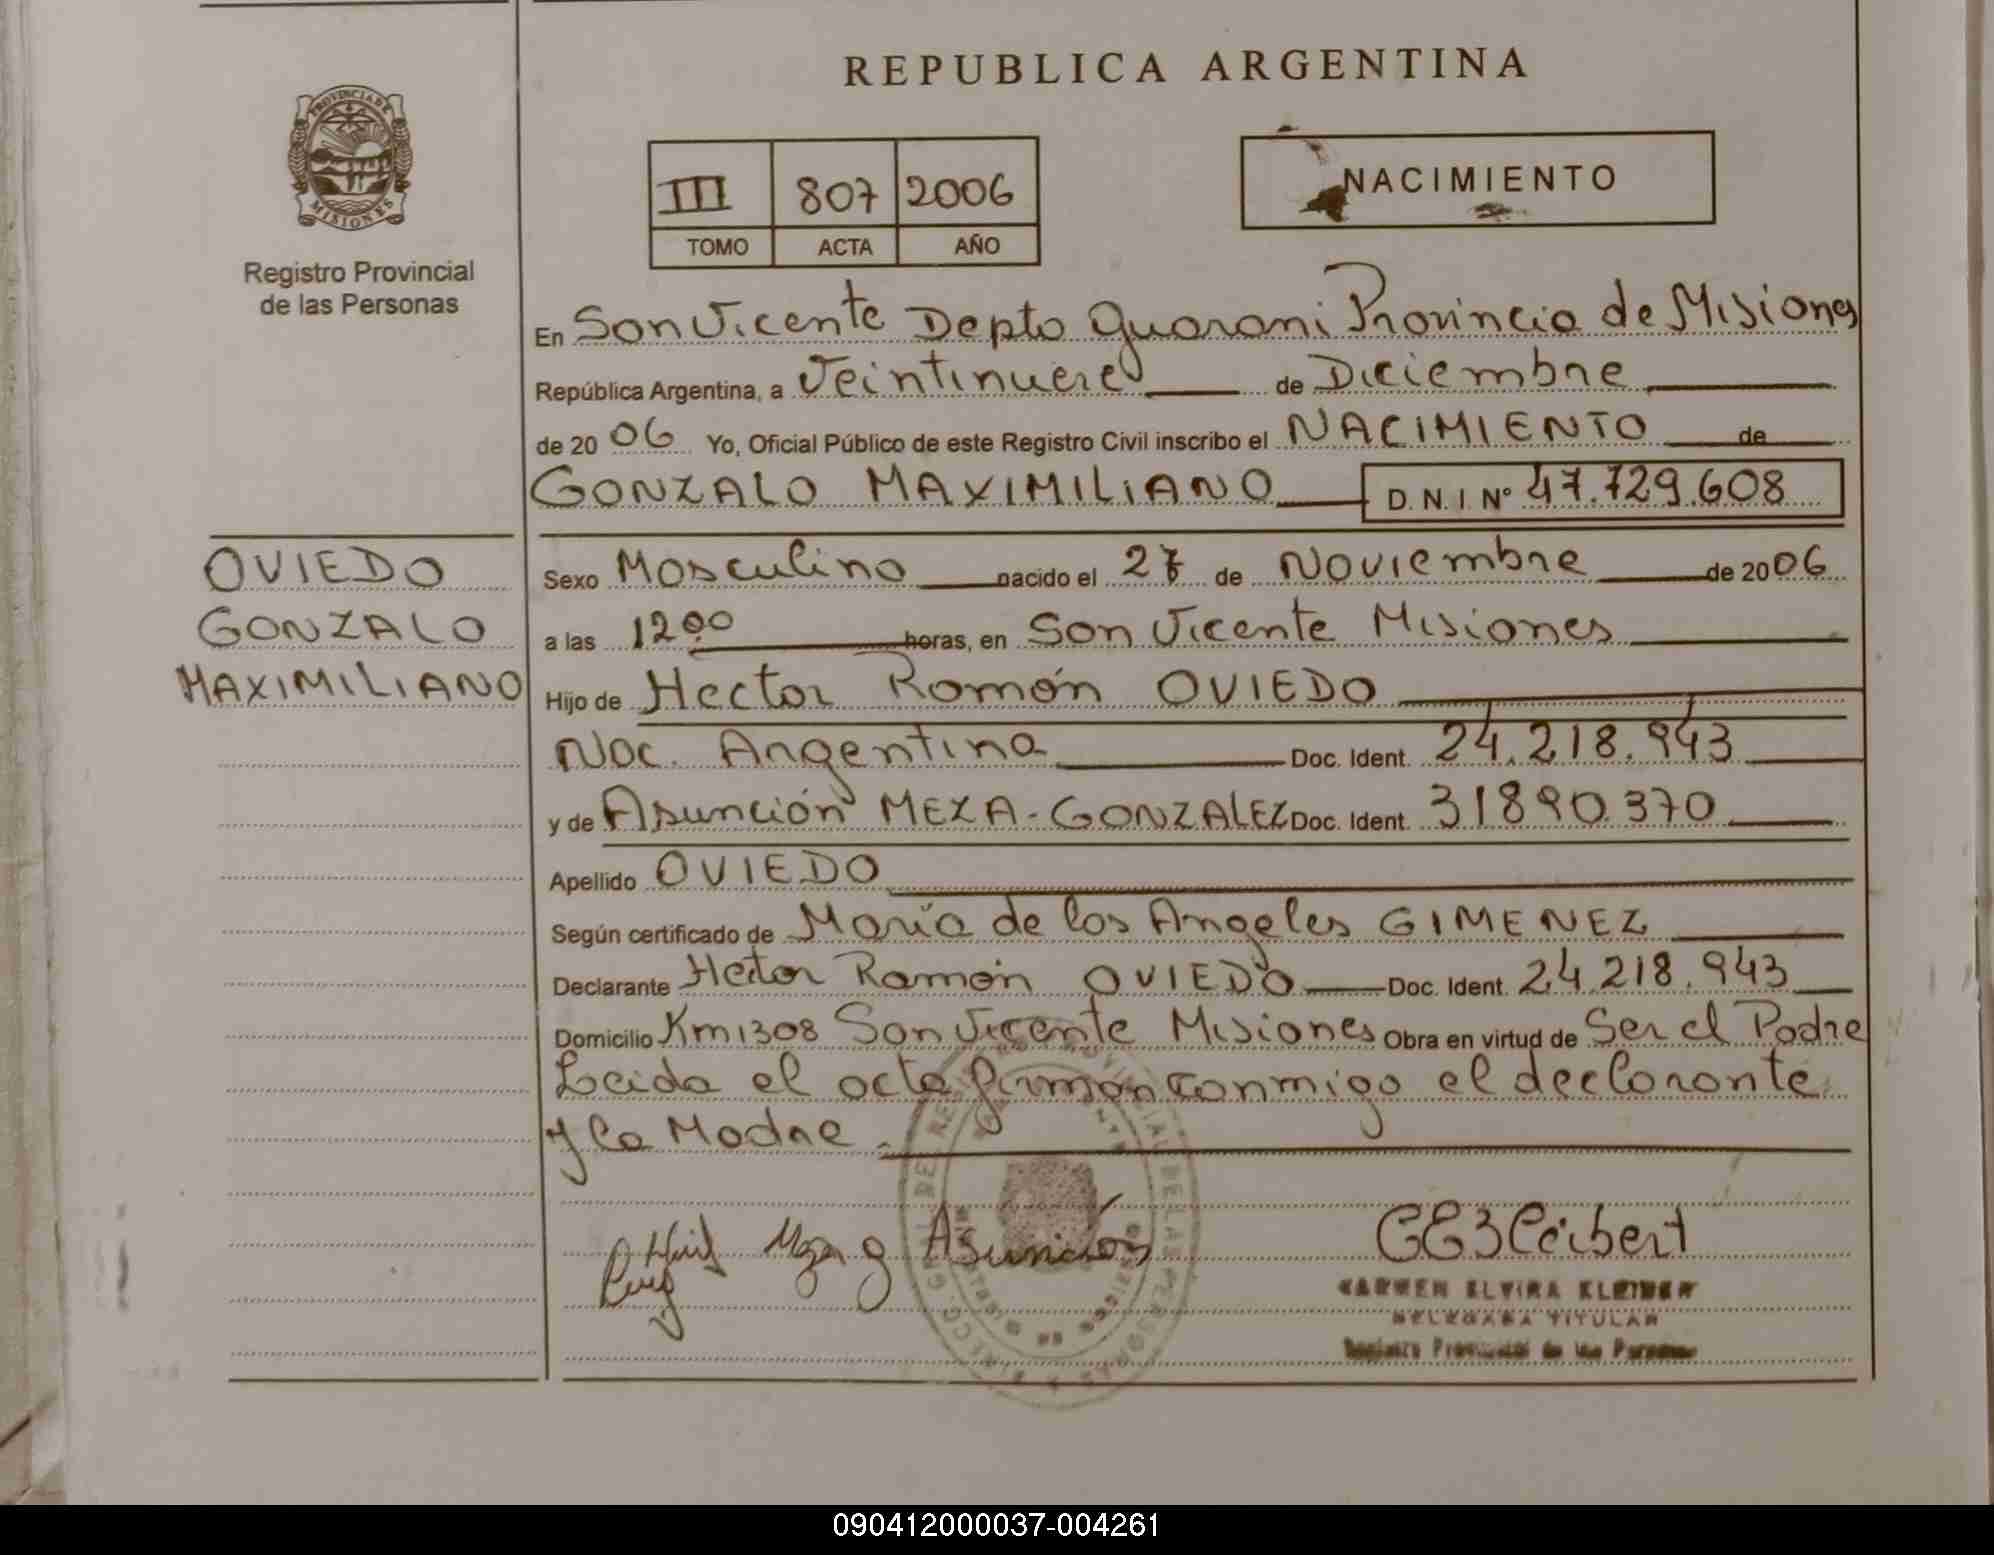 REPUBLICA ARGENTINA
PROVINCIA DE
MISIONES
Registro Provincial
de las Personas
III 807 2006
TOMO ACTA AÑO
NACIMIENTO
En San Vicente Depto Guarani Provincia de Misiones
República Argentina, a Veintinueve de Diciembre
de 2006 Yo, Oficial Público de este Registro Civil inscribo el NACIMIENTO de
GONZALO MAXIMILIANO D. N. I. Nº 47.729.608
OVIEDO
GONZALO
MAXIMILIANO
Sexo Masculino nacido el de Noviembre de 2006
a las 12 00 horas, en San Vicente Misiones
Hijo de Hector Ramón OVIEDO
Nac. Argentina Doc. Ident. 24.218.943
y de Asunción MEZA-GONZALEZ Doc. Ident. 31890.370
Apellido OVIEDO
Según certificado de María de los Angeles GIMENEZ
Declarante Hector Ramón OVIEDO Doc. Ident. 24.218.943
Domicilio Km1308 San Vicente Misiones Obra en virtud de Ser el Padre
Leida el acta firman conmigo el declarante
y la Madre.
Asunción
CARMEN ELVIRA KLEIBER
DELEGADA TITULAR
Registro Provincial de las Personas
090412000037-004261